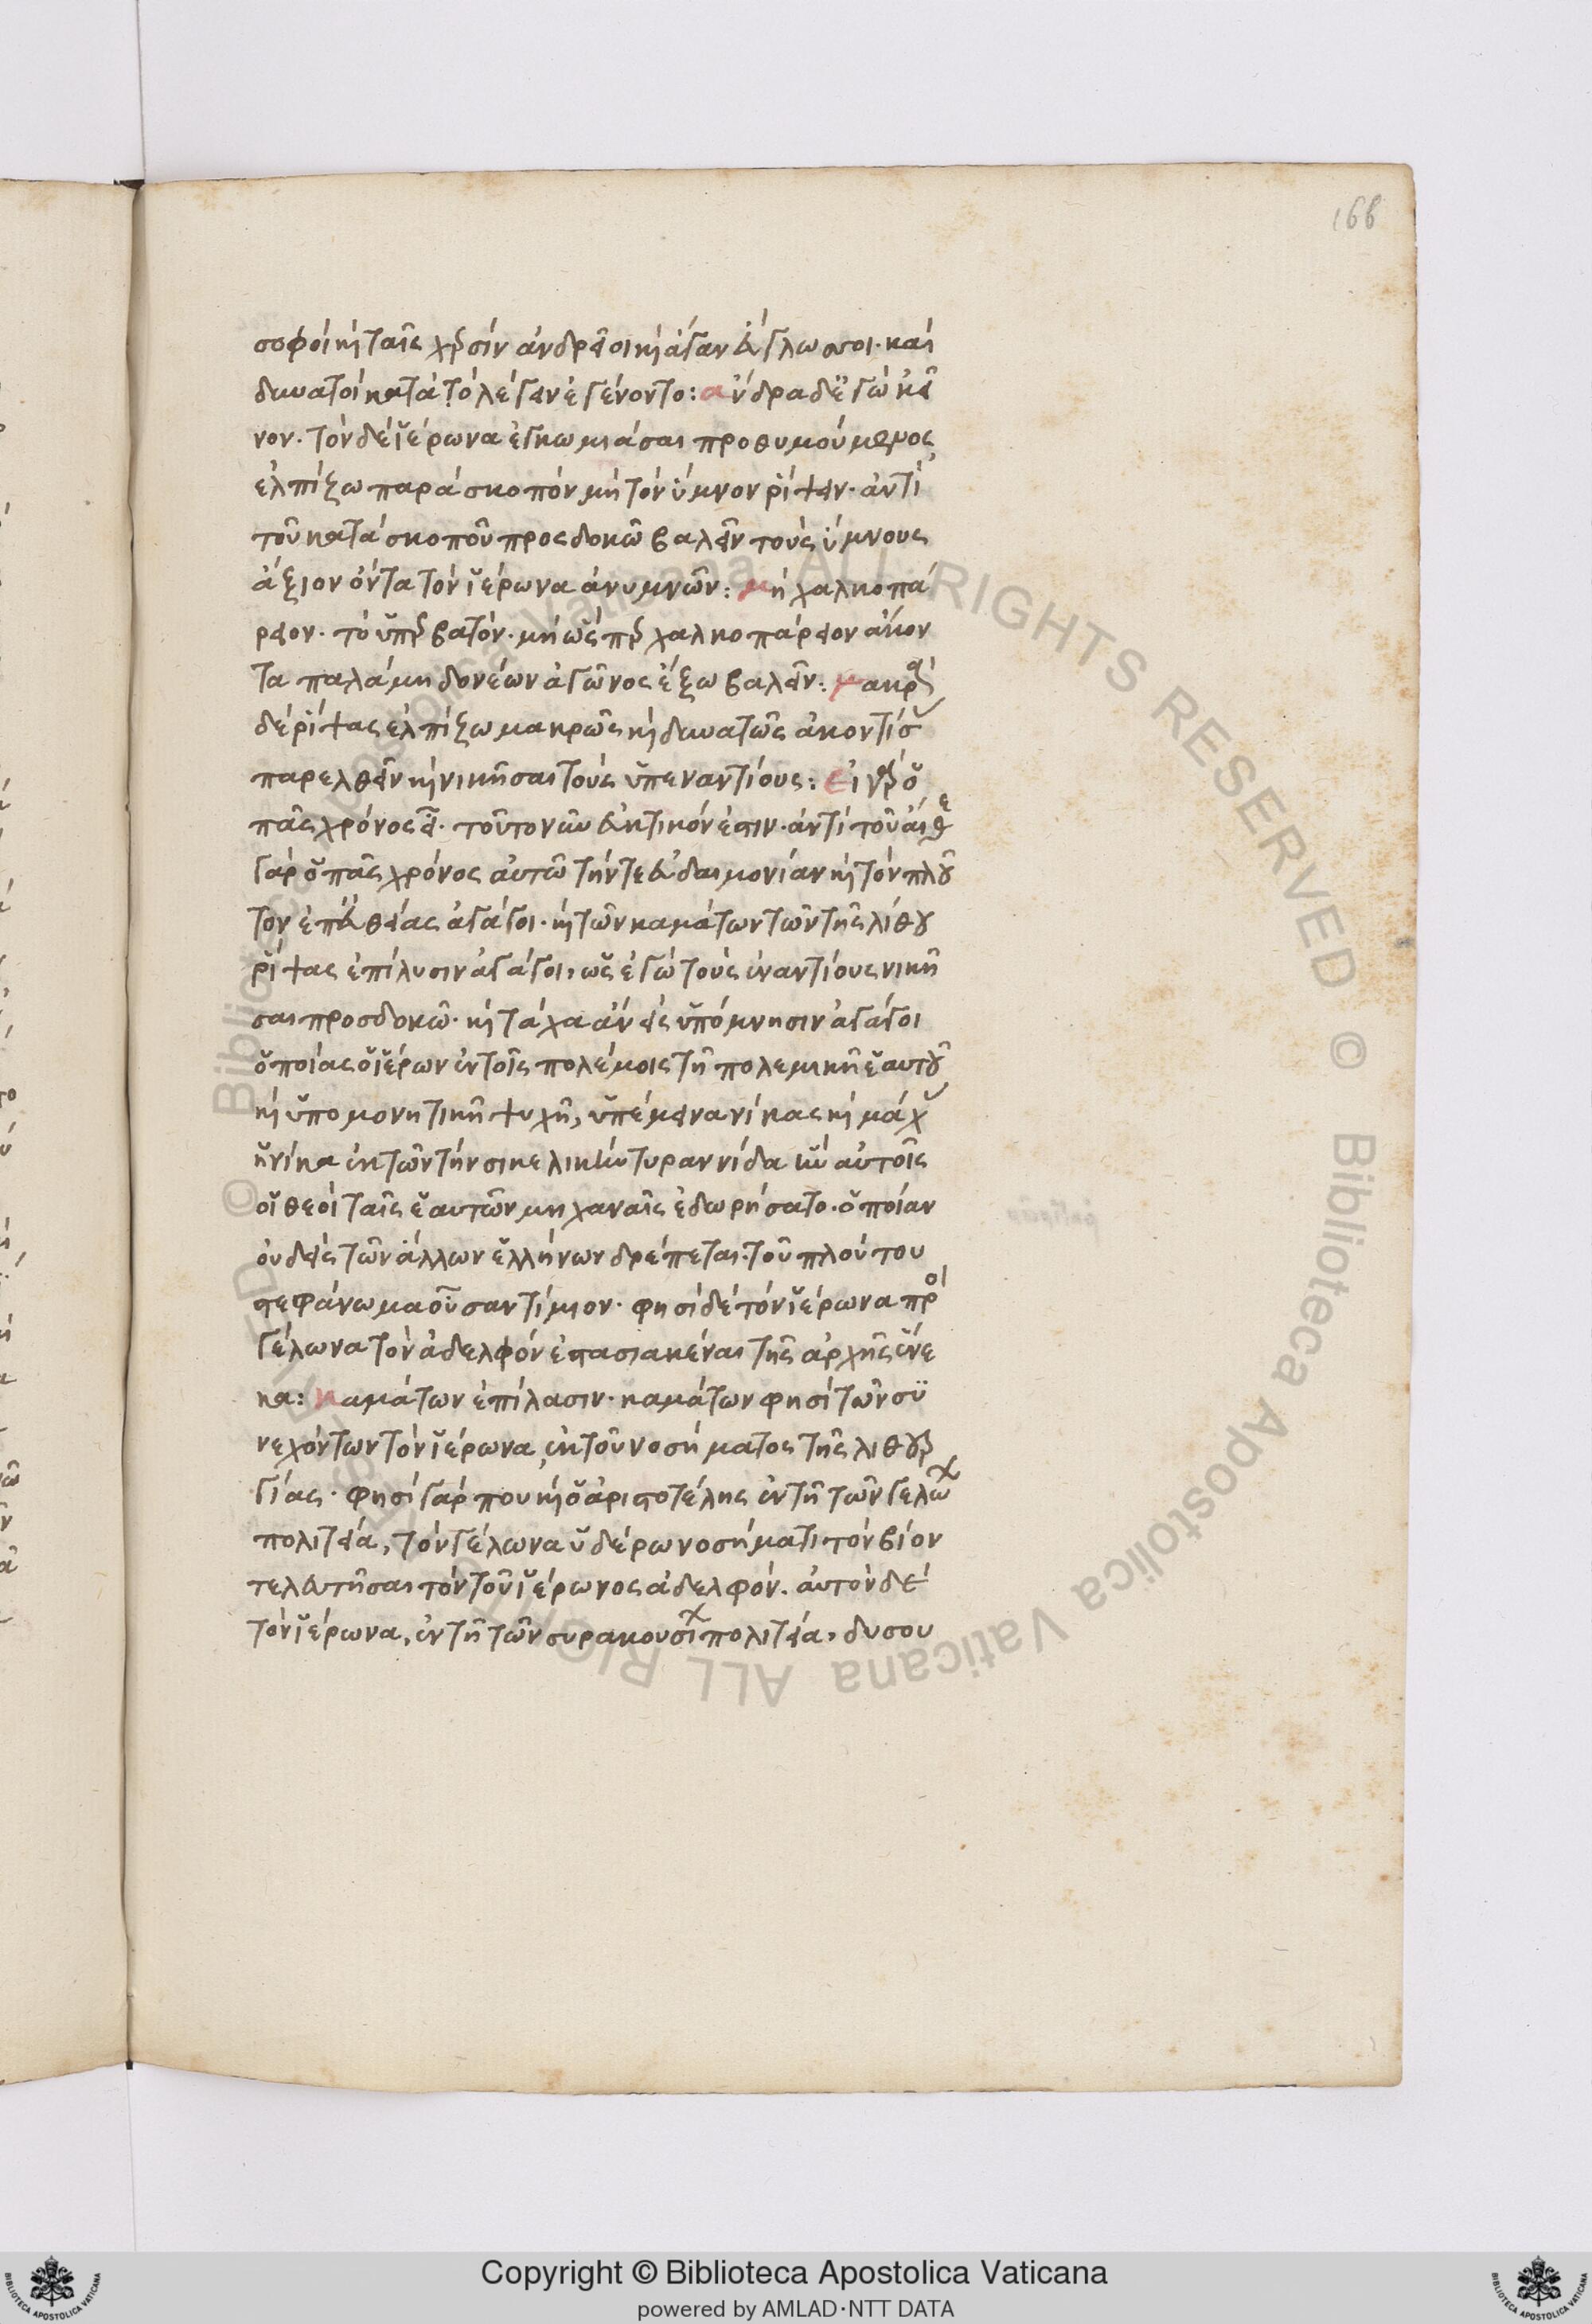 166
σοφοί κὶ ταῖς χερσίν ἀνδρεῖοι κὶ ἀγαν εὔγλωσσοι· καὶ
δυνατοὶ κατὰ τὸ λέγειν ἐγένοντο: ἄνδρα δ' ἐγὼ κεῖ
νον· τὸν δὲ ἱέρωνα ἐγκωμιάσαι προθυμούμενος
ἐλπίζω παρὰ σκοπὸν μὴ τὸν ὕμνον ρίψειν· ἀντὶ
τοῦ κατὰ σκοποῦ προσδοκῶ βαλεῖν τοὺς ὕμνους
ἄξιον ὄντα τὸν ἱέρωνα ἀνυμνῶν: μὴ χαλκοπά
ραον· τὸ ὑπερβατόν· μὴ ὡς περ χαλκοπάραον ἄκον
τα παλάμη δονέων ἀγῶνος ἔξω βαλεῖν: μακρὰ
δὲ ρίψας ἐλπίζω μακρῶς κὶ δυνατῶς ἀκοντίσας
παρελθεῖν κὶ νικῆσαι τοὺς ὑπεναντίους: εἰ γὰρ ὁ
πᾶς χρόνος εἰ· τοῦτο νῦν εὐκτικόν ἐστιν· ἀντὶ τοῦ αἴθε
γὰρ ὁ πᾶς χρόνος αὐτῷ τήν τε εὐδαιμονίαν κὶ τὸν πλοῦ
τον ἐπ' εὐθείας ἀγάγοι· κὶ τῶν καμάτων τῶν τῆς λίθου
ρίψας ἐπίλυσιν ἀγάγοι, ὡς ἐγὼ τοὺς ἐναντίους νικῆ
σαι προσδοκῶ· κὶ τάχα ἂν εἰς ὑπόμνησιν ἀγάγοι
ὁποίας ὁ ἱέρων ἐν τοῖς πολέμοις τῇ πολεμικῇ ἑαυτοῦ
κὶ ὑπομονητικῇ ψυχῇ, ὑπέμεινα νίκας κὶ μάχας
ἡνίκα ἐκ τῶν τὴν σικελικὴν τυραννίδα σὺν αὐτοῖς
οἱ θεοὶ ταῖς ἑαυτῶν μηχαναῖς ἐδωρήσατο· ὁποίαν
οὐδεὶς τῶν ἄλλων ἑλλήνων δρέπεται· τοῦ πλούτου
στεφάνωμα οὖσαν τίμιον· φησὶ δὲ τὸν ἱέρωνα πρὸς
γέλωνα τὸν ἀδελφὸν ἐστασιακέναι τῆς ἀρχῆς ἕνε
κα: καμάτων ἐπίλασιν· καμάτων φησὶ τῶν συ
νεχόντων τὸν ἱέρωνα, ἐκ τοῦ νοσήματος τῆς λιθουρ
γίας· φησὶ γάρ που κὶ ὁ ἀριστοτέλης ἐν τῇ τῶν γελώων
πολιτεία, τὸν γέλωνα ὑδέρω νοσήματι τὸν βίον
τελευτῆσαι τὸν τοῦ ἱέρωνος ἀδελφόν. αὐτὸν δὲ
τὸν ἱέρωνα, ἐν τῇ τῶν συρακουσίων πολιτεία, δυσου
Copyright © Biblioteca Apostolica Vaticana
powered by AMLAD·NTT DATA